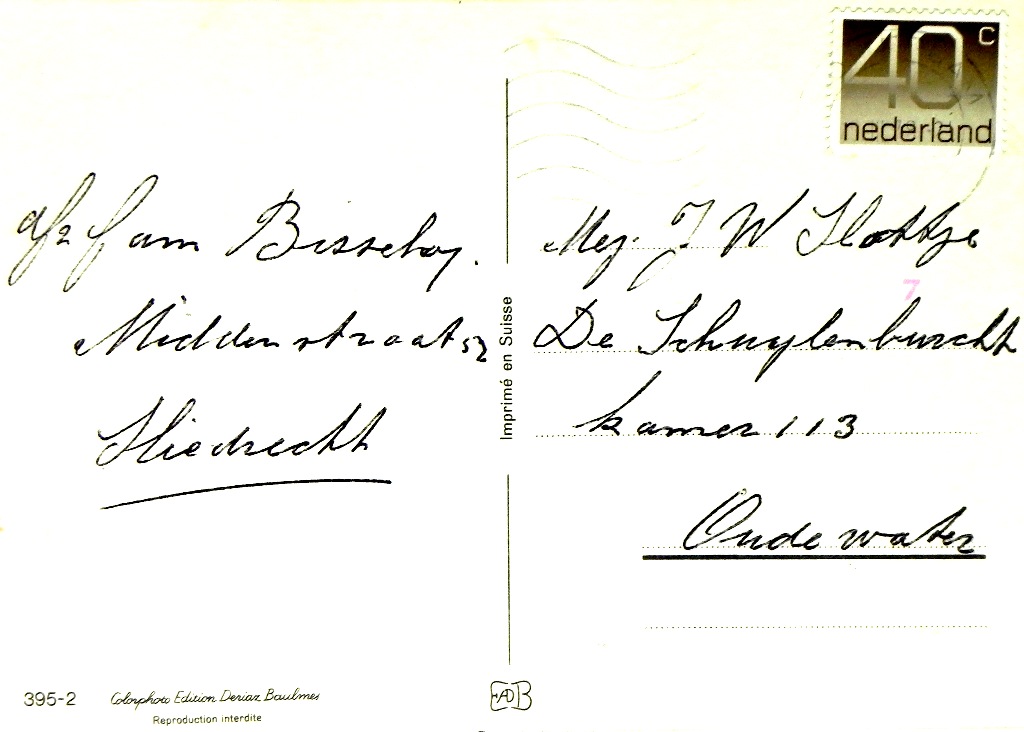 40 c
nederland
afz fam Bisschop.
Middenstraat 52
Sliedrecht
Mej. J W Slottje
7
De Schuylenburcht
kamer 113
Oudewater
Imprimé en Suisse
395-2 Colorphoto Edition Deriaz Baulmes
Reproduction interdite